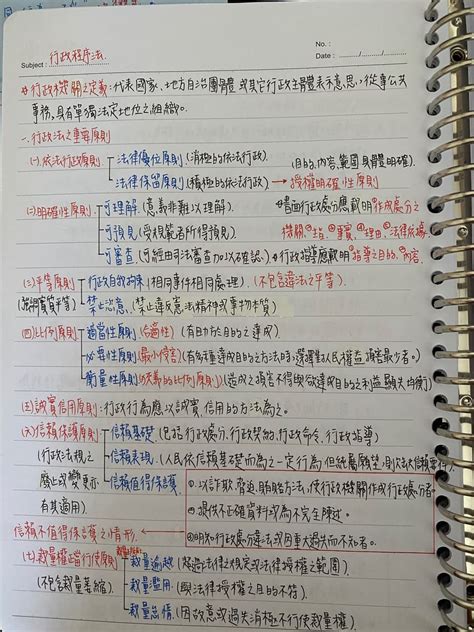 No. :
Subject : 行政程序法. Date : ....../....../......
行政機關之定義:代表國家、地方自治團體或其它行政主體表示意思,從事公共
事務,具有單獨法定地位之組織。
一、行政法之重要原則
(一)依法行政原則 法律優位原則 (消極的依法行政). (目的、內容、範圍具體明確).
法律保留原則 (積極的依法行政) → 授權明確性原則
(二)明確性原則 可理解 (意義非難以理解). 書面行政處分應載明作成處分之
可預見 (受規範者所得預見). 機關、事實、理由、法律依據
可審查 (可經由司法審查加以確認). 行政指導應載明指導之目的、內容.
(三)平等原則 行政自我拘束 (相同事件相同處理). (不包含違法之平等).
實質平等) 禁止恣意. (禁止違反憲法精神或事物本質)
(四)比例原則 適當性原則 (合適性) (有助於目的之達成)
必要性原則 (最小侵害) (有多種達成目的之方法時,選擇對人民權益損害最少者。)
衡量性原則 (狹義的比例原則) (造成之損害不得與欲達成目的之利益顯失均衡)
(五)誠實信用原則:行政行為應以誠實、信用的方法為之。
(六)信賴保護原則 信賴基礎 (包括行政處分、行政契約、行政命令、行政指導)
(行政法規之 信賴表現 (人民依信賴基礎而為之一定行為,但純屬願望、
廢止或變更亦 信賴值得保護. ①以詐欺、脅迫、賄賂方法,使行政機關作成行政處分者。
有其適用) ②提供不正確資料或為不完全陳述。
信賴不值得保護之情形 ③明知行政處分違法或因重大過失而不知者。
(七)裁量權正當行使原則 裁量逾越 (超過法律之規定或法律授權之範圍).
(不包含裁量萎縮) 裁量濫用 (與法律授權之目的不符).
裁量怠惰 (因故意或過失消極不行使裁量權)